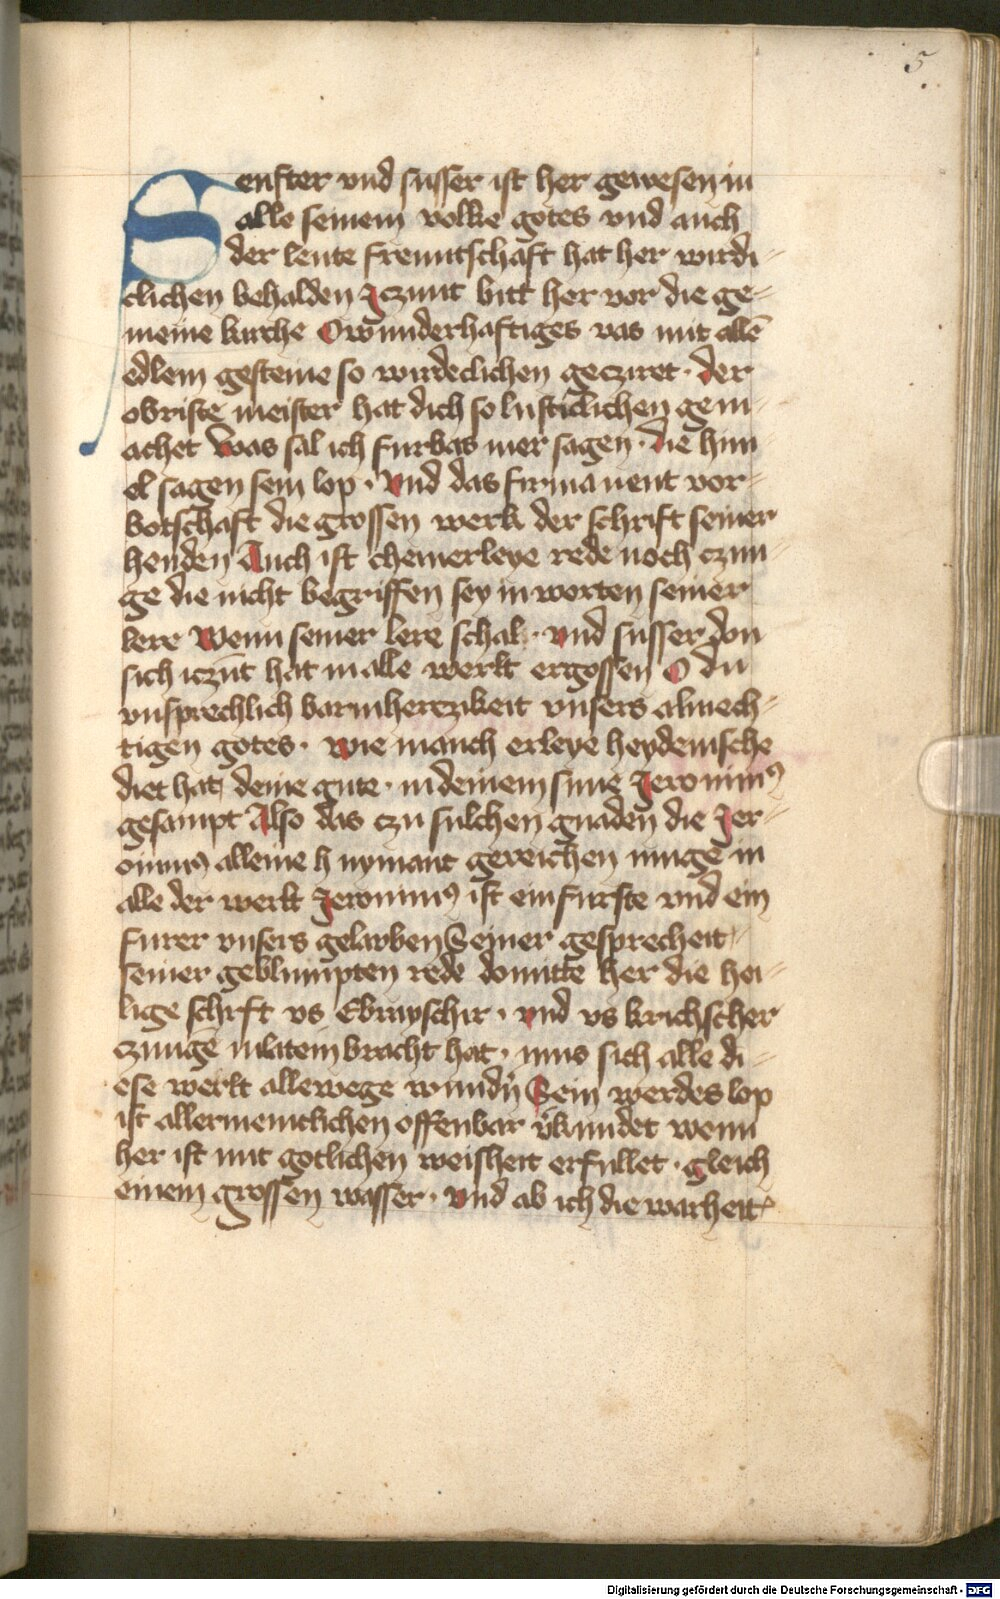 5
Senfter vnd susser ist her gewesen in
alle seinem volke gotes vnd auch
der leute freuntschaft hat her wirdi-
clichen behalden Iczunt bitt her vor die ge-
meine kirche O wunderhaftiges vas mit allē
edlem gesteine so wirdeclichen gecziret · der
obriste meister hat dich so lusticlichen gem-
achet Was sal ich furbas mer sagen · die him
el sagen sein lop · Vnd das firmament vor-
botschaft die grossen werk der schrift seiner
henden Auch ist cheinerleye rede noch czun-
ge die nicht begriffen sey in worten seiner
lere Wenn seiner lere schal · vnd susser don
sich iczūt hat in alle werlt ergossen O du
vnsprechlich barmherczikeit vnsers almech-
tigen gotes · wie manch erleye heydenische
diet hat deine gute · in deinem sune Jeronimꝰ
gesampt Also das czu sulchen gnaden die Jer-
onimꝰ alleine h nymant gereichen muge in
alle der werlt Jeronimꝰ ist ein furste vnd ein
furer vnsers gelawben Seiner gesprecheit
seiner geblumpten rede domitte her die hei-
lige schrft vs Ebrayscher · vnd vs krichscher
czunge in latein bracht hat · mus sich alle di-
ese werlt allewege wundn̄ Sein werdes lop
ist allermeniclichen offenbar v̄kundet wenn
her ist mit gotlichen weisheit erfullet · gleich
einem grossen wasser · vnd ab ich die warheit
Digitalisierung gefördert durch die Deutsche Forschungsgemeinschaft - DFG